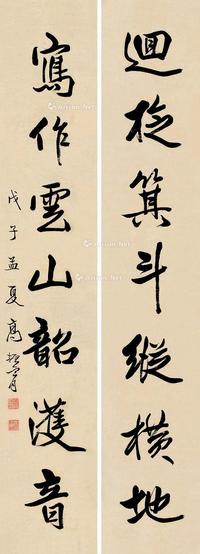 迴旋箕斗縱橫地
寫作雲山韶濩音
戊子孟夏 高振霄